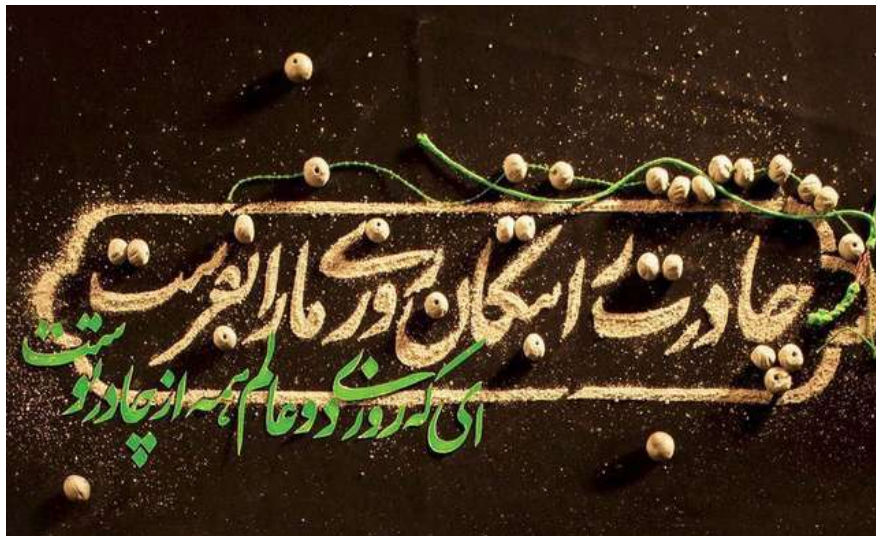 چادرت را بتکان روزی ما را بفرست
ای که روزی دو عالم همه از چادر توست